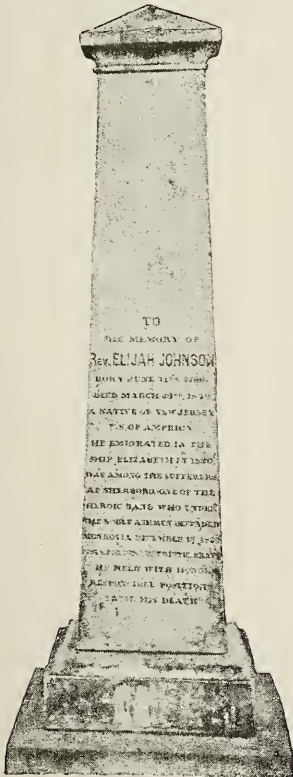 TO
THE MEMORY OF
REV. ELIJAH JOHNSON
BORN JUNE 11TH
DIED MARCH
A NATIVE OF NEW JERSEY
U.S. OF AMERICA
HE EMIGRATED IN THE
SHIP ELIZABETH IN 1820
WAS AMONG THE SUFFERERS
AT SHERBORO, ONE OF THE
HEROIC BAND WHO UNDER
DEFENDED
MONROVIA DECEMBER
HE HELD WITH HONOR
POSITIONS
UNTIL HIS DEATH